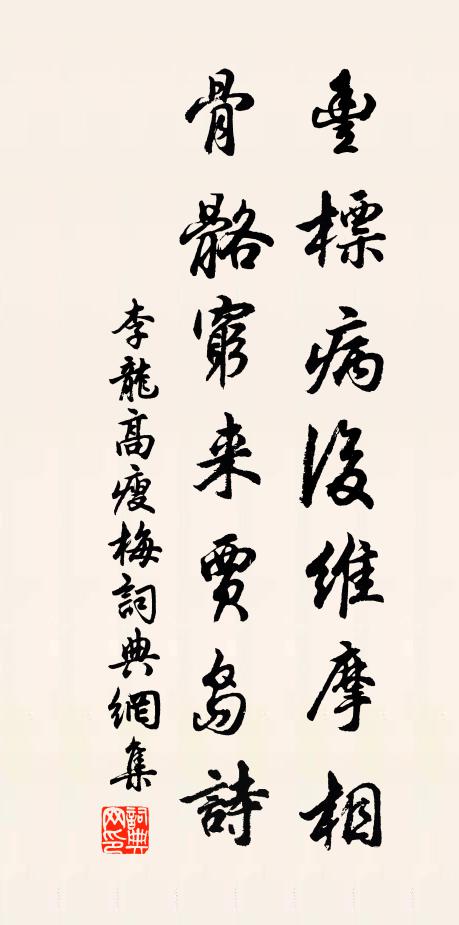 豊標病後維摩相
骨骼窮来賈島詩
李龍高瘦梅詞典網集
詞典網印